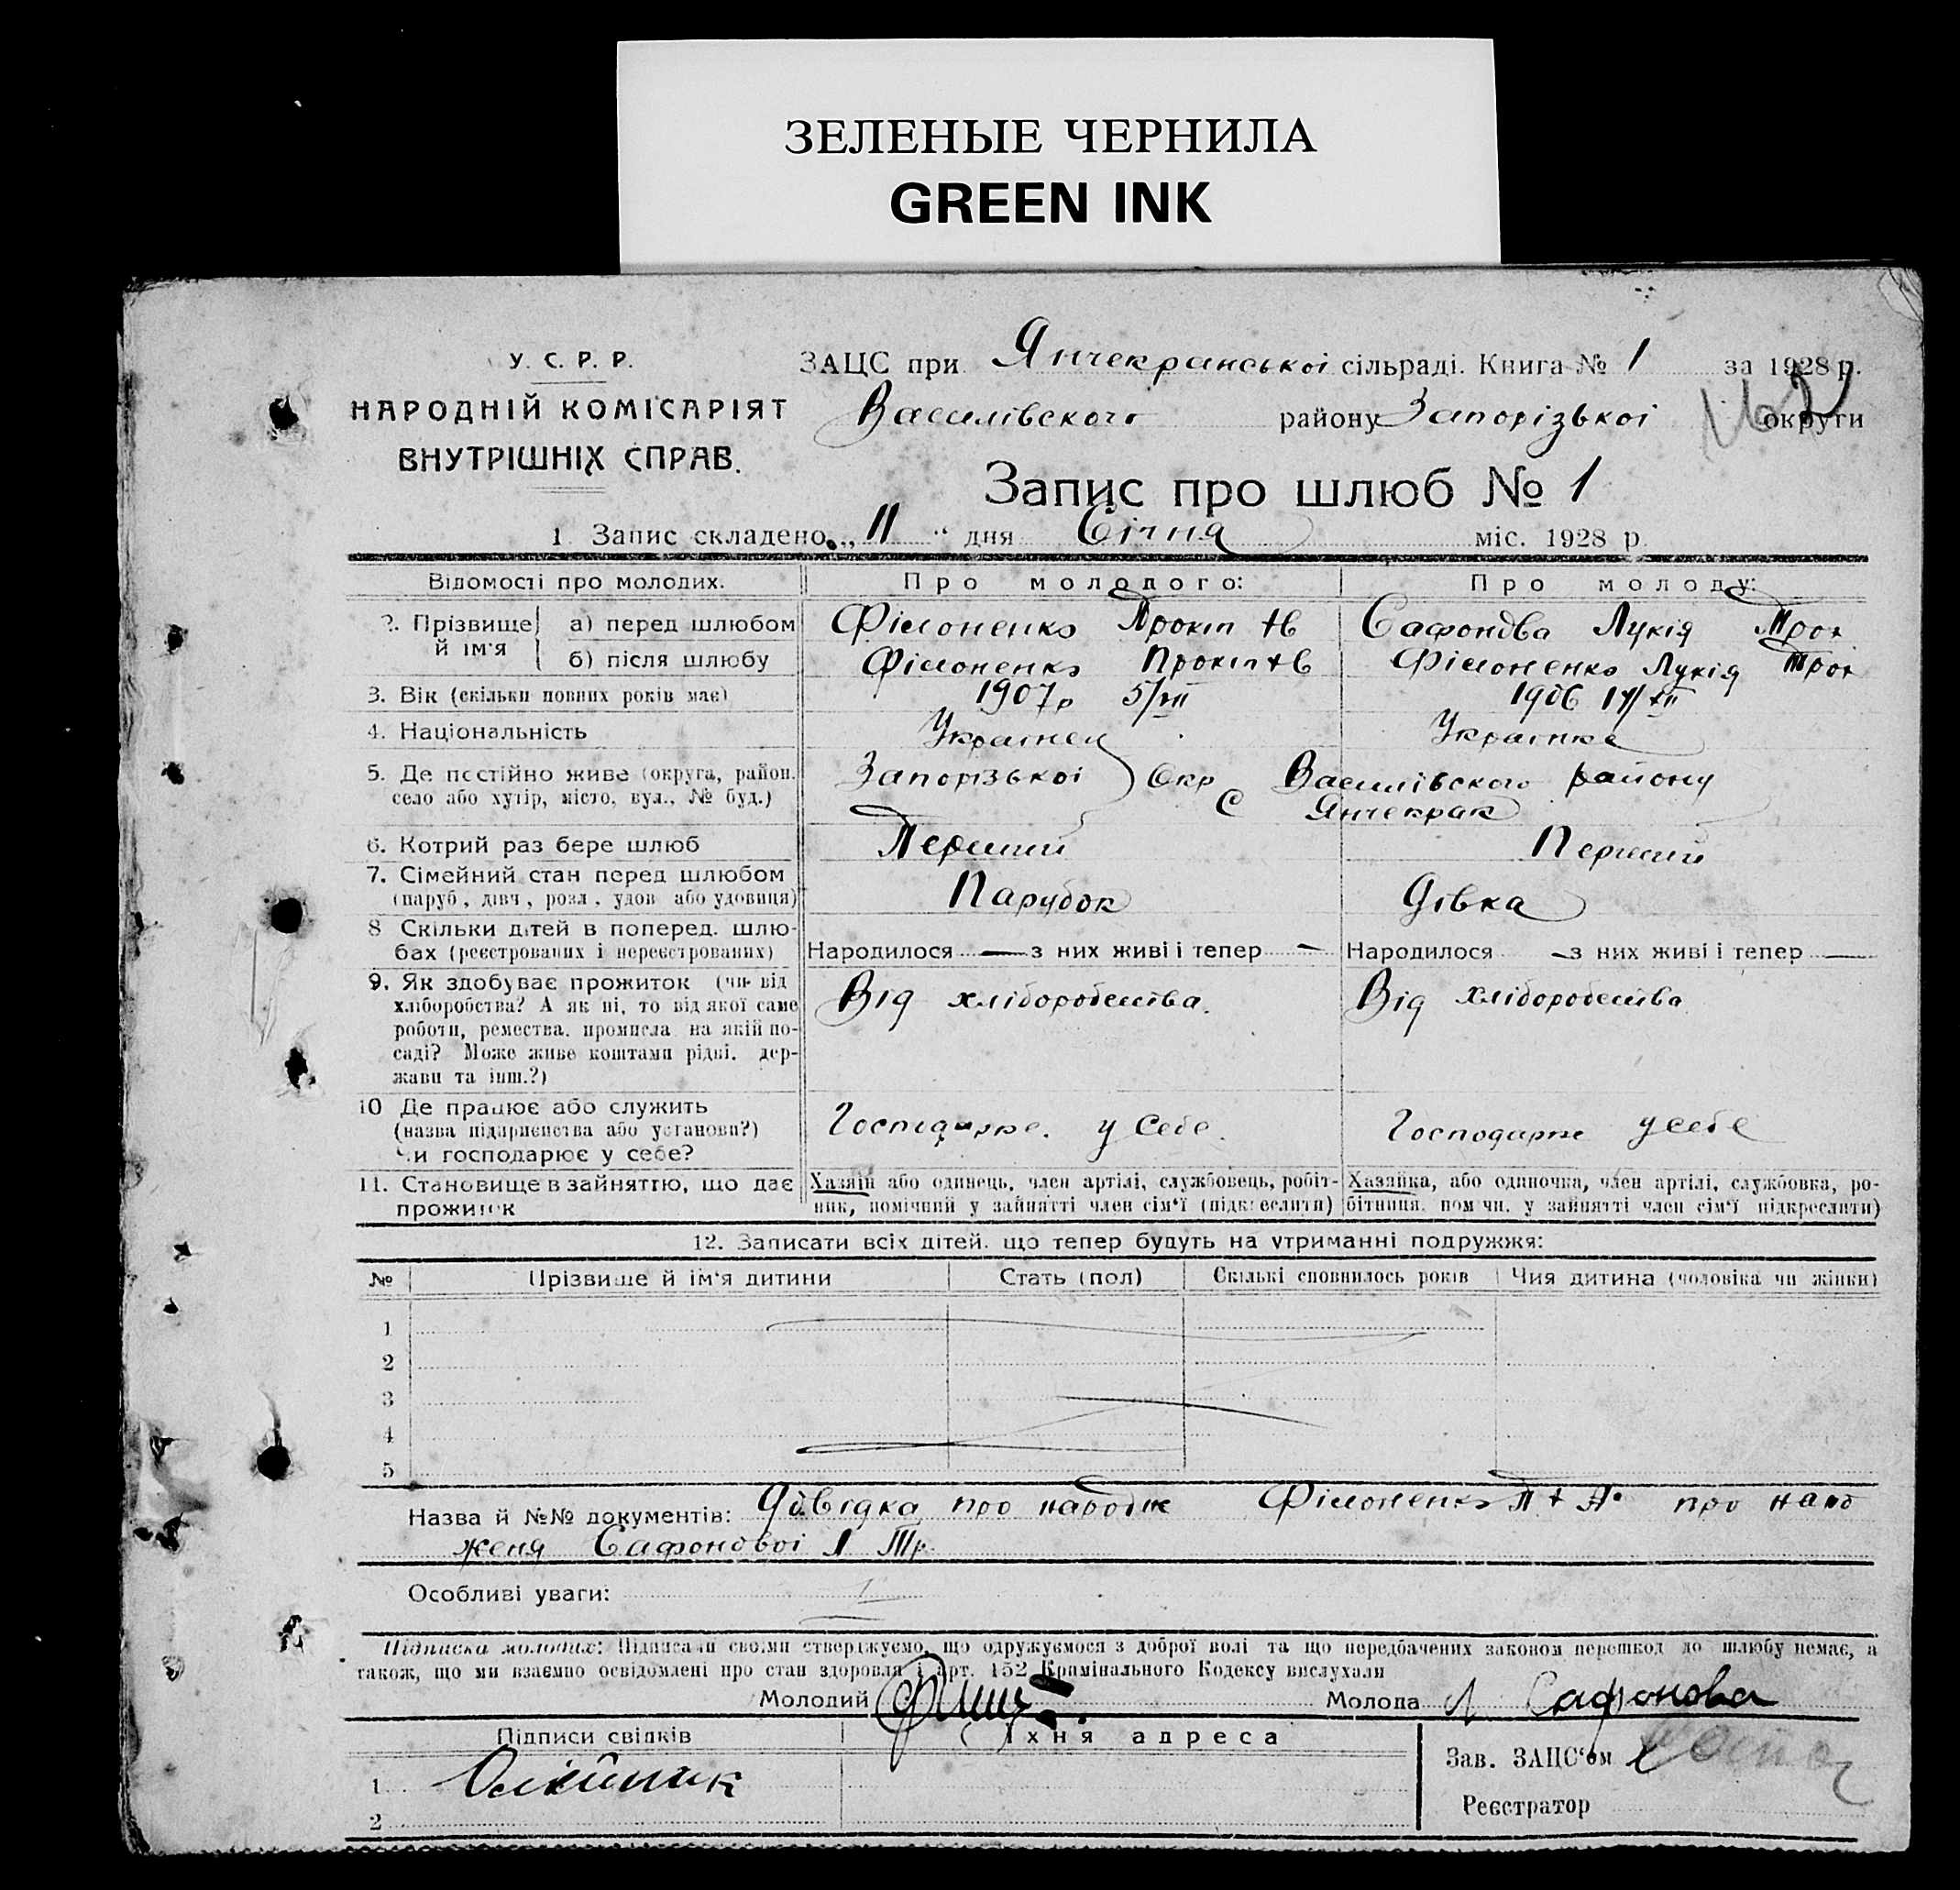 ЗЕЛЕНЫЕ ЧЕРНИЛА
GREEN INK
У. С. Р. Р.
НАРОДНІЙ КОМІСАРІЯТ
ВНУТРІШНІХ СПРАВ.
ЗАЦС при Янчекранської сільраді. Книга № 1 за 1928 р.
Василівского району Запорізької округи
Запис про шлюб № 1
1 Запис складено „11“ дня Січня міс. 1928 р
Відомості про молодих. Про молодого: Про молоду:
2. Прізвище й ім'я а) перед шлюбом Філоненко Прокіп Сафонова Лукія Трох
б) після шлюбу Філоненко Прокіп Філоненко Лукія Трох
3. Вік (скільки повних років має) 1907р 5/VII 1906 17/XII
4. Національність Українец Українка
5. Де постійно живе (округа, район. Запорізької Окр Василівского району
село або хутір, місто, вул., № буд.) С Янчекрак
6. Котрий раз бере шлюб Перший Перший
7. Сімейний стан перед шлюбом Парубок Дівка
(паруб, дівч, розл, удов або удовиця)
8 Скільки дітей в поперед. шлю-
бах (реєстрованих і нереєстрованих) Народилося — з них живі і тепер — Народилося — з них живі і тепер —
9. Як здобуває прожиток (чи від Від хліборобства. Від хліборобства
хліборобства? А як ні, то від якої саме
роботи, ремества. промисла на якій по-
саді? Може живе коштами рідні. дер-
жави та інш.?)
10 Де працює або служить
(назва підприємства або установи?) Господарює. у себе. Господарює у себе
Чи господарює у себе?
11. Становище в зайняттю, що дає Хазяїн або одинець, член артілі, службовець, робіт- Хазяйка, або одиночка, член артілі, службовка, ро-
прожиток ник, помічний у зайнятті член сім'ї (підкреслити) бітниця. помічн. у зайнятті член сім'ї підкреслити)
12. Записати всіх дітей. що тепер будуть на утриманні подружжя:
№ Прізвище й ім'я дитини Стать (пол) Скількі сповнилось років Чия дитина (чоловіка чи жінки)
1
2
3
4
5
Назва й №№ документів: Довідка про народж Філоненко П про наро
женя Сафонової Л Тр.
Особливі уваги:
Підписка молодих: Підписами своїми стверджуємо, що одружуємося з доброї волі та що передбачених законом перешкод до шлюбу немає, а
також, що ми взаємно освідомлені про стан здоровля і арт. 152 Кримінального Кодексу вислухали
Молодий Молода Л Сафонова
Підписи свідків Їхня адреса
Зав. ЗАЦС'ом
1. Олійник
Реєстратор
2